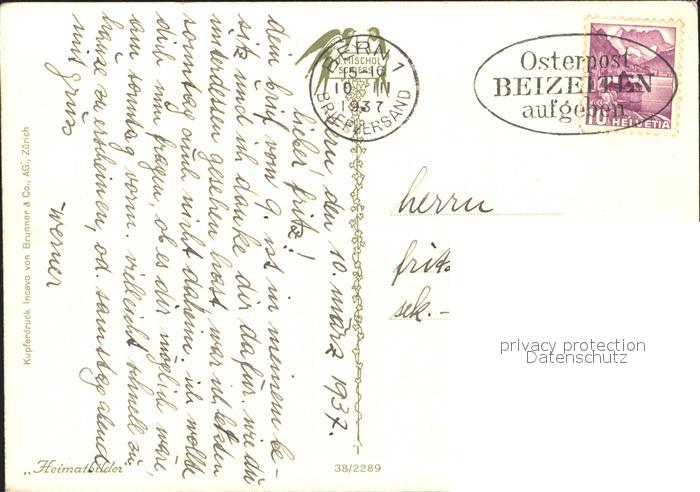 bern den 10. märz 1937.
lieber fritz!
dein brief vom 9. ist in meinem be-
sitz und ich danke dir dafür. wie du
unterdessen gesehen hast war ich letzten
sonntag auch nicht daheim. ich wollte
dich nun fragen, ob es dir möglich wäre,
am sonntag vorm. vielleicht schnell zu
hause zu erscheinen, od. samstag abend
mit gruss
werner
BERN 1
15-16
10 III
1937
BRIEFVERSAND
Osterpost
BEIZEITEN
aufgeben
10 HELVETIA
herrn
fritz
sek. -
privacy protection
Datenschutz
Kupferdruck Incavo von Brunner & Co., AG., Zürich
„Heimatbilder"
38/2289